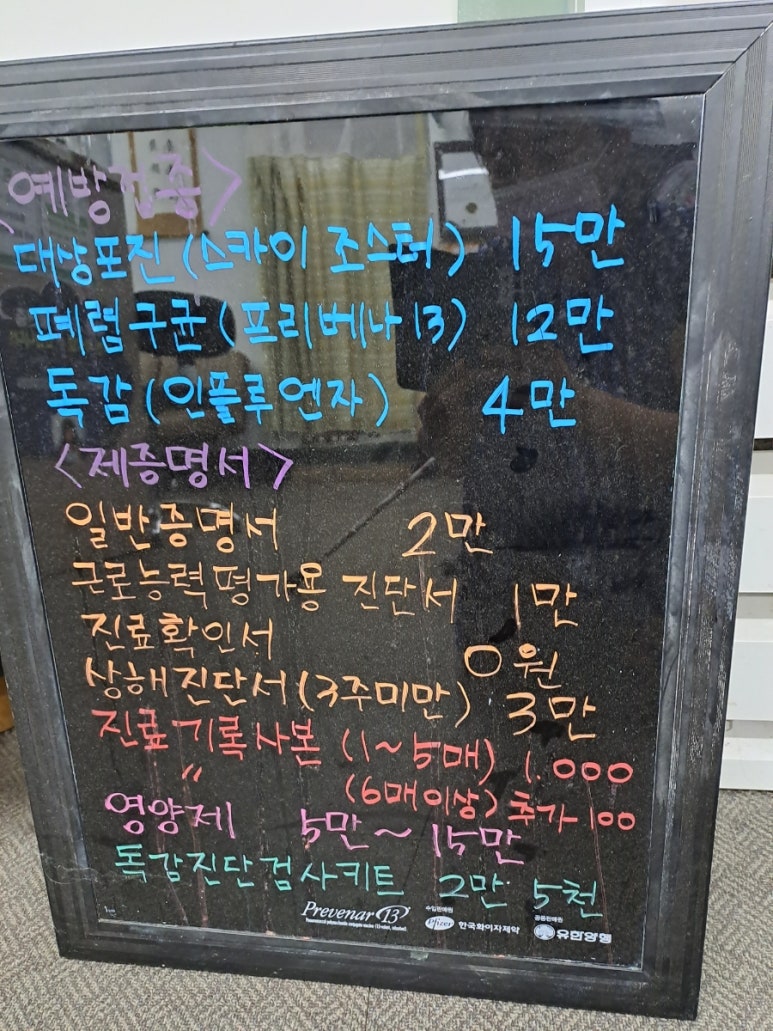 <예방접종>
대상포진(스카이 조스터) 15만
폐렴구균(프리베나13) 12만
독감(인플루엔자) 4만
<제증명서>
일반증명서 2만
근로능력평가용 진단서 1만
진료확인서 0원
상해진단서(3주미만) 3만
진료기록사본 (1~5매) 1.000
〃 (6매이상) 추가 100
영양제 5만~15만
독감진단검사키트 2만 5천
Prevenar 13
수입판매원
Pfizer 한국화이자제약
공동판매원
유한양행